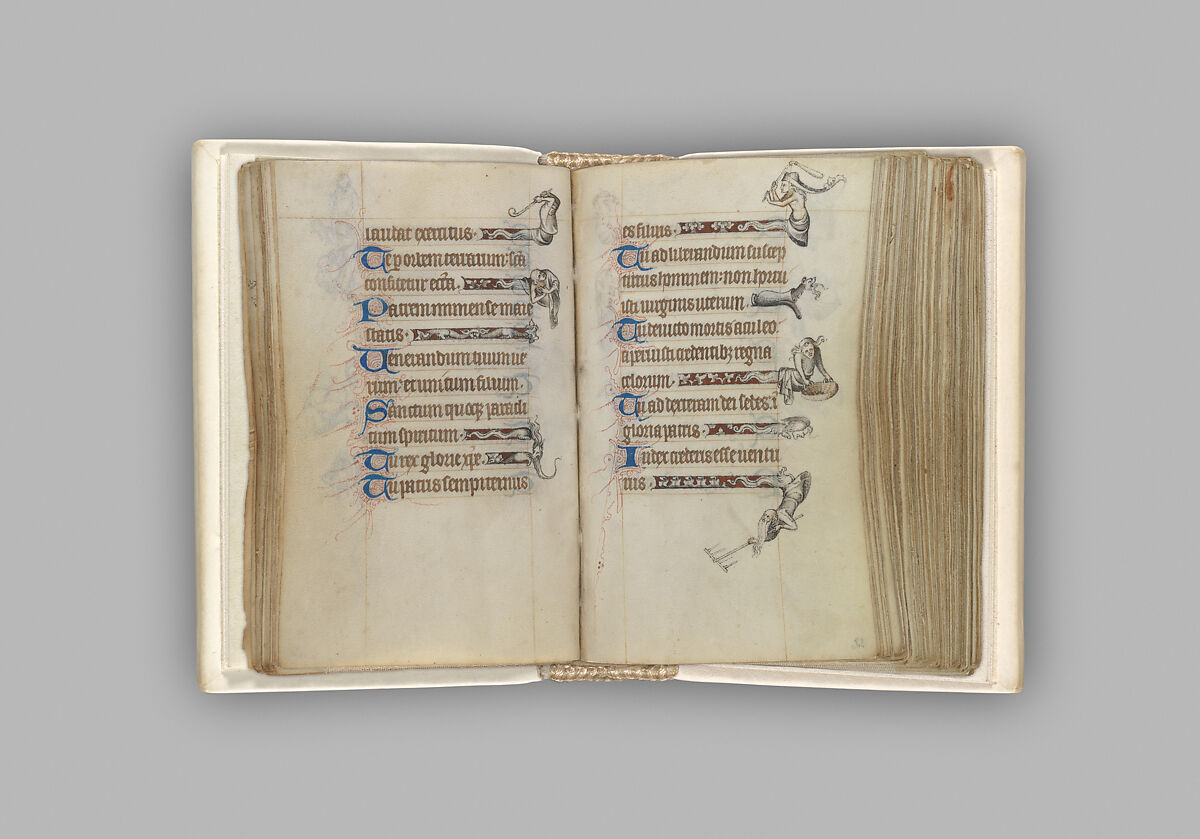 laudat exercitus.
Te p orbem terrarum: sc̄a
confitetur ecc̄a.
Patrem inmense maie
statis.
Uenerandum tuum ue
rum: et unicum filium.
Sanctum quoqꝫ paracli
tum spiritum.
Tu rex glorie xp̄e.
Tu patris sempiternus
es filius.
Tu ad liberandum suscep
turus hominem: non horru
isti uirginis uterum.
Tu deuicto mortis aculeo:
aperuisti credentibꝫ regna
celorum.
Tu ad dexteram dei sedes: i
gloria patris.
Iudex crederis esse uentu
rus.
52